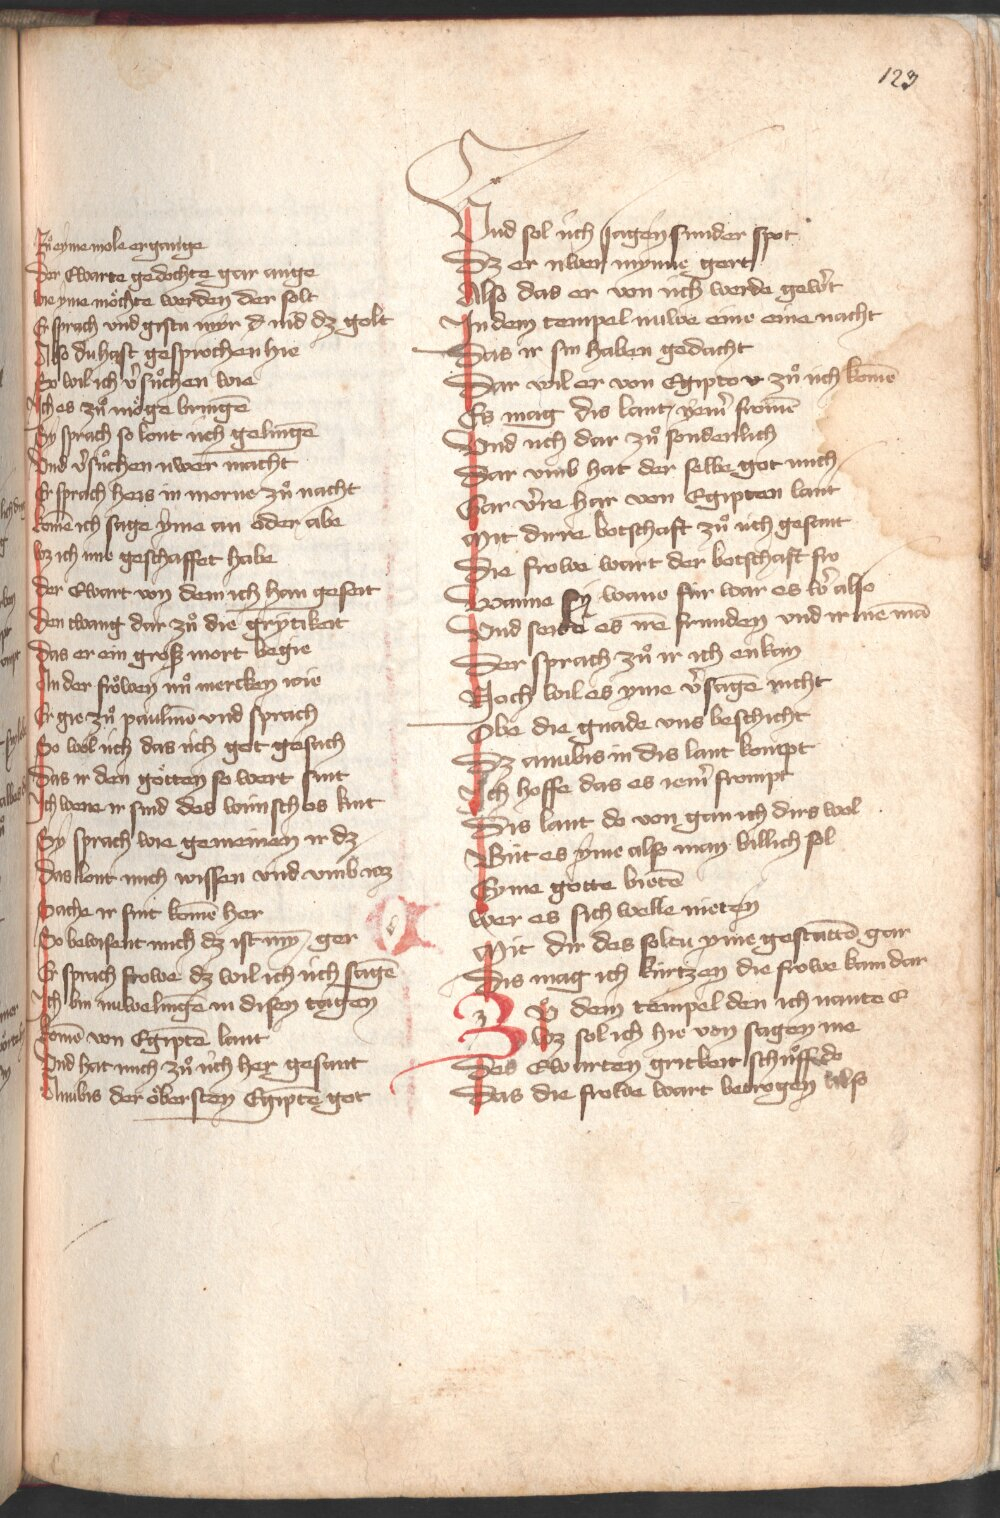 123
Zuͦ eyme mole ergange
Der Ewarte gedochte gar ange
wie yme moͤchte werden der solt
Er sprach vnd gistu myr d nid dz golt
Also du hast gesprochen hie
So wil ich v̾suͦchen wie
Ich es zuͦ moͤge bringē
Sy sprach so lont uch gelingē
Vnd v̾suͦchen uwer macht
Er sprach heis in morne zuͦ nacht
komē ich sage yme an oder abe
wz ich nuo geschaffet habe
der Ewart von dem ich han geseit
Den twang dar zuͦ die grytikeit
Das er ein groͤß mort begie
An der froͤwen nuͦ mercken wie
Er gie zuͦ paulino vnd sprach
So wol uch das uch got gesach
Das ir den goͤtten so wert sint
Ich wene ir sind des wunsches kint
Sy sprach wie gemeinen ir dz
Das lont mich wissen vnd vmb waz
Sache ir sint komē her
So bewisent mich dz ist my̅ ger
Er sprach frowe dz wil ich uch sagē
Ich bin nuwelingē in disen tagen
komē von Egiptē lant
Vnd hat mich zuͦ uch her gesant
Anubis der oͤbersten Egiptē got
Vnd sol uch sagen sunder spot
Dz er uwer mynne gert
Also das er von uch werde gew̾t
In dem tempel nuwe eine eine nacht
Das ir sin haben gedacht
Dar wil er von Egipto v zuͦ uch komē
Es mag dis lant yem̾ fromē
Vnd uch dar zuͦ sonderlich
Dar vmb hat der selbe got mich
Gar v̾re har von Egipten lant
Mit dirre botschaft zuͦ uch gesant
Die frowe wart der botschaft fro
Wanne sy wane fúr war es w̾ also
Vnd seite es irē frunden vnd ir mē mā
Der sprach zuͦ ir ich enkan
Noch wil es yme v̾sagē nicht
Obe die gnade vns beschicht
Dz anubis in dis lant kompt
Ich hoffe das es iem̾ frompt
Dis lant do von gan ich dirs wol
But es yme also man billich sol
Eyme gotte bietē
wer es sich welle nieten
Mit dir des soltu yme gestattē gar
Dis mag ich kúrtzen die frowe kam dar
Zuͦ dem tempel den ich nante E
Wz sol ich hie von sagen me
Des Ewarten gritkeit schuͦff do
Das die frowe wart betrogen also